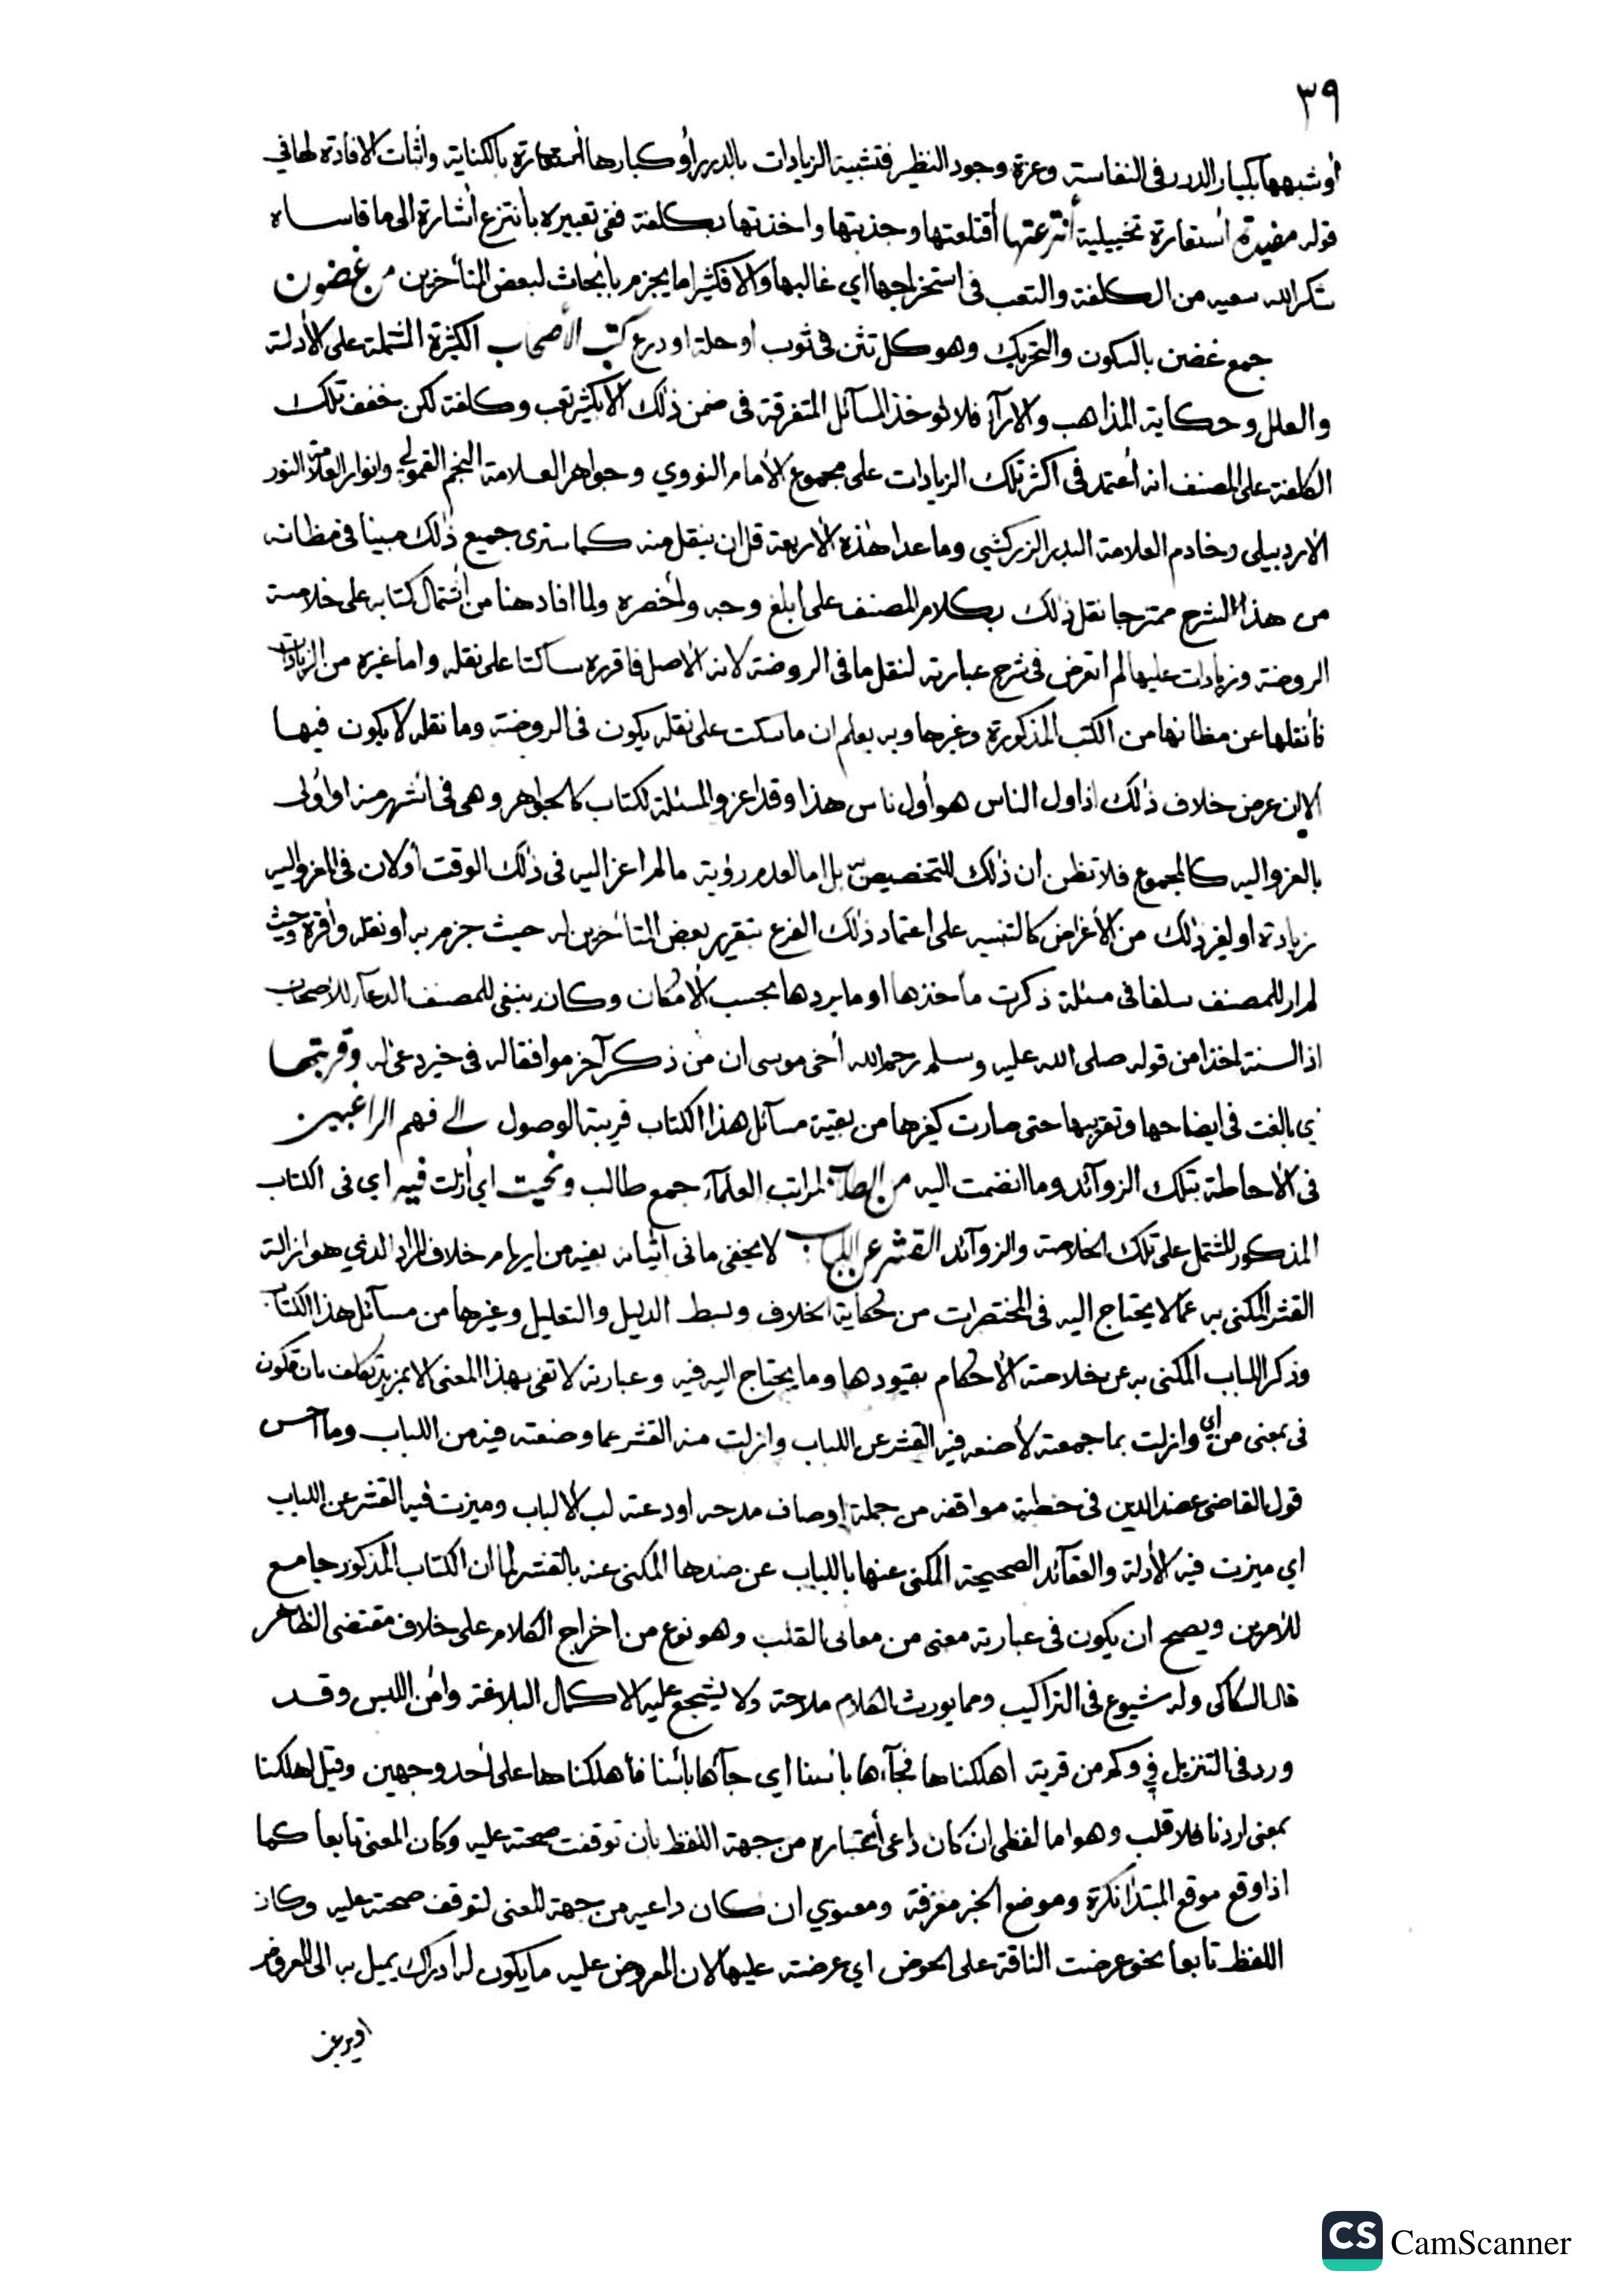 ٣٩
أو شبهها بكبار الدرر في النفاسة وعزة وجود النظير فتشبيه الزيادات بالدرر أو كبارها استعارة بالكناية واثبات الافادة لها في
قوله مفيدة استعارة تخييلية أنتزعتها أقتلعتها وجذبتها واخذتها بكلفة ففي تعبيره بانتزع أشارة الى ما قاساه
شكر الله سعيه من الكلفة والتعب في استخراجها اي غالبها والا فكثيرا ما يجزم بابحاث لبعض المتأخرين من غضون
جمع غضن بالسكون والتحريك وهو كل تثن في ثوب او حلة او درع كتب الأصحاب الكثيرة المشتملة على الأدلة
والعلل وحكاية المذاهب والارآء فلا تؤخذ المسآئل المتفرقة في ضمن ذلك الا بكثير تعب وكلفة لكن خفف تلك
الكلفة على المصنف انه أعتمد في اكثر تلك الزيادات على مجموع الأمام النووي وجواهر العلامة النجم القمولي وانوار العلامة النور
الاردبيلي وخادم العلامة البدر الزركشي وما عدا هذه الأربعة قل ان ينقل منه كما سترى جميع ذلك مبينا في مظانه
من هذا الشرح ممتزجا نقل ذلك بكلام المصنف على ابلغ وجه وأخصره ولما افاد هنا من أشتمال كتابه على خلاصة
الروضة وزيادات عليها لم اتعرض في شرح عبارته لنقل ما في الروضة لانه الأصل فاقرره ساكتا على نقله واما غيره من الزيادات
فأنقلها عن مظانها من الكتب المذكورة وغيرها وبه يعلم ان ما سكت على نقله يكون في الروضة وما نقله لا يكون فيها
الا لن عرض خلاف ذلك اذ اول الناس هو أول ناس هذا وقد اعزو المسئلة لكتاب كالجواهر وهي في اشهر منه او أولى
بالعزو اليه كالمجموع فلا تظن ان ذلك للتخصيص بل اما لعدم رؤية ما لم اعز اليه في ذلك الوقت أو لان في المعزو اليه
زيادة او لغير ذلك من الأغراض كالتنبيه على اعتماد ذلك الفرع بتقرير بعض المتأخرين له حيث جزم به او نقله وأقره وحيث
لم ار للمصنف سلفا في مسئلة ذكرت مأخذها او ما يردها بحسب الأمكان وكان ينبغي للمصنف الدعآء للأصحاب
اذ السنة اخذا من قوله صلى الله عليه وسلم رحم الله أخي موسى ان من ذكر آخر موافقا له في خير دعى له وقربتها
اي بالغت في ايضاحها وتقريبها حتى صارت كغيرها من بقية مسآئل هذا الكتاب قريبة الوصول الى فهم الراغبين
في الأحاطة بتلك الزوآئد وما انضمت اليه من الطلاب لمراتب العلمآء جمع طالب ونحيت اي أزلت فيه اي في الكتاب
المذكور المشتمل على تلك الخلاصة والزوآئد القشر عن اللباب لا يخفى ما في اتيانه بفيه من ايهام خلاف المراد الذي هو ازالة
القشر المكنى به عما لا يحتاج اليه في المختصرات من حكاية الخلاف وبسط الدليل والتعليل وغيرها من مسآئل هذا الكتاب
وذكر اللباب المكنى به عن خلاصة الأحكام بقيودها وما يحتاج اليه فيه وعبارته لا تفي بهذا المعنى الا بمزيد تكلف بان تكون
في بمعنى من اي وازلت بما جمعته لأضعه فيه القشر عن اللباب وازلت منه القشر عما وضعته فيه من اللباب وما احسن
قول القاضي عضد الدين في خطبة مواقفه من جملة اوصاف مدحه اودعته لب الألباب وميزت فيه القشر عن اللباب
اي ميزت فيه الأدلة والعقآئد الصحيحة المكنى عنها باللباب عن ضدها المكنى عنه بالقشر لما ان الكتاب المذكور جامع
للأمرين ويصح ان يكون في عبارته معنى من معاني القلب وهو نوع من اخراج الكلام على خلاف مقتضى الظاهر
قال السكاكي وله شيوع في التراكيب ومما يورث الكلام ملاحة ولا يشجع عليه الا كمال البلاغة وأمن اللبس وقد
ورد في التنزيل في وكم من قرية اهلكناها فجآءها بأسنا اي جآءها بأسنا فأهلكناها على أحد وجهين وقيل اهلكنا
بمعنى اردنا فلا قلب وهو اما لفظي ان كان داعي أعتباره من جهة اللفظ بان توقفت صحته عليه وكان المعنى تابعا كما
اذا وقع موقع المبتدأ نكرة وموضع الخبر معرفة ومعنوي ان كان داعيه من جهة المعنى لتوقف صحته عليه وكان
اللفظ تابعا نحو عرضت الناقة على الحوض اي عرضته عليها لان المعروض عليه ما يكون له أدراك يميل به الى المعروض
او يرغب
CS CamScanner